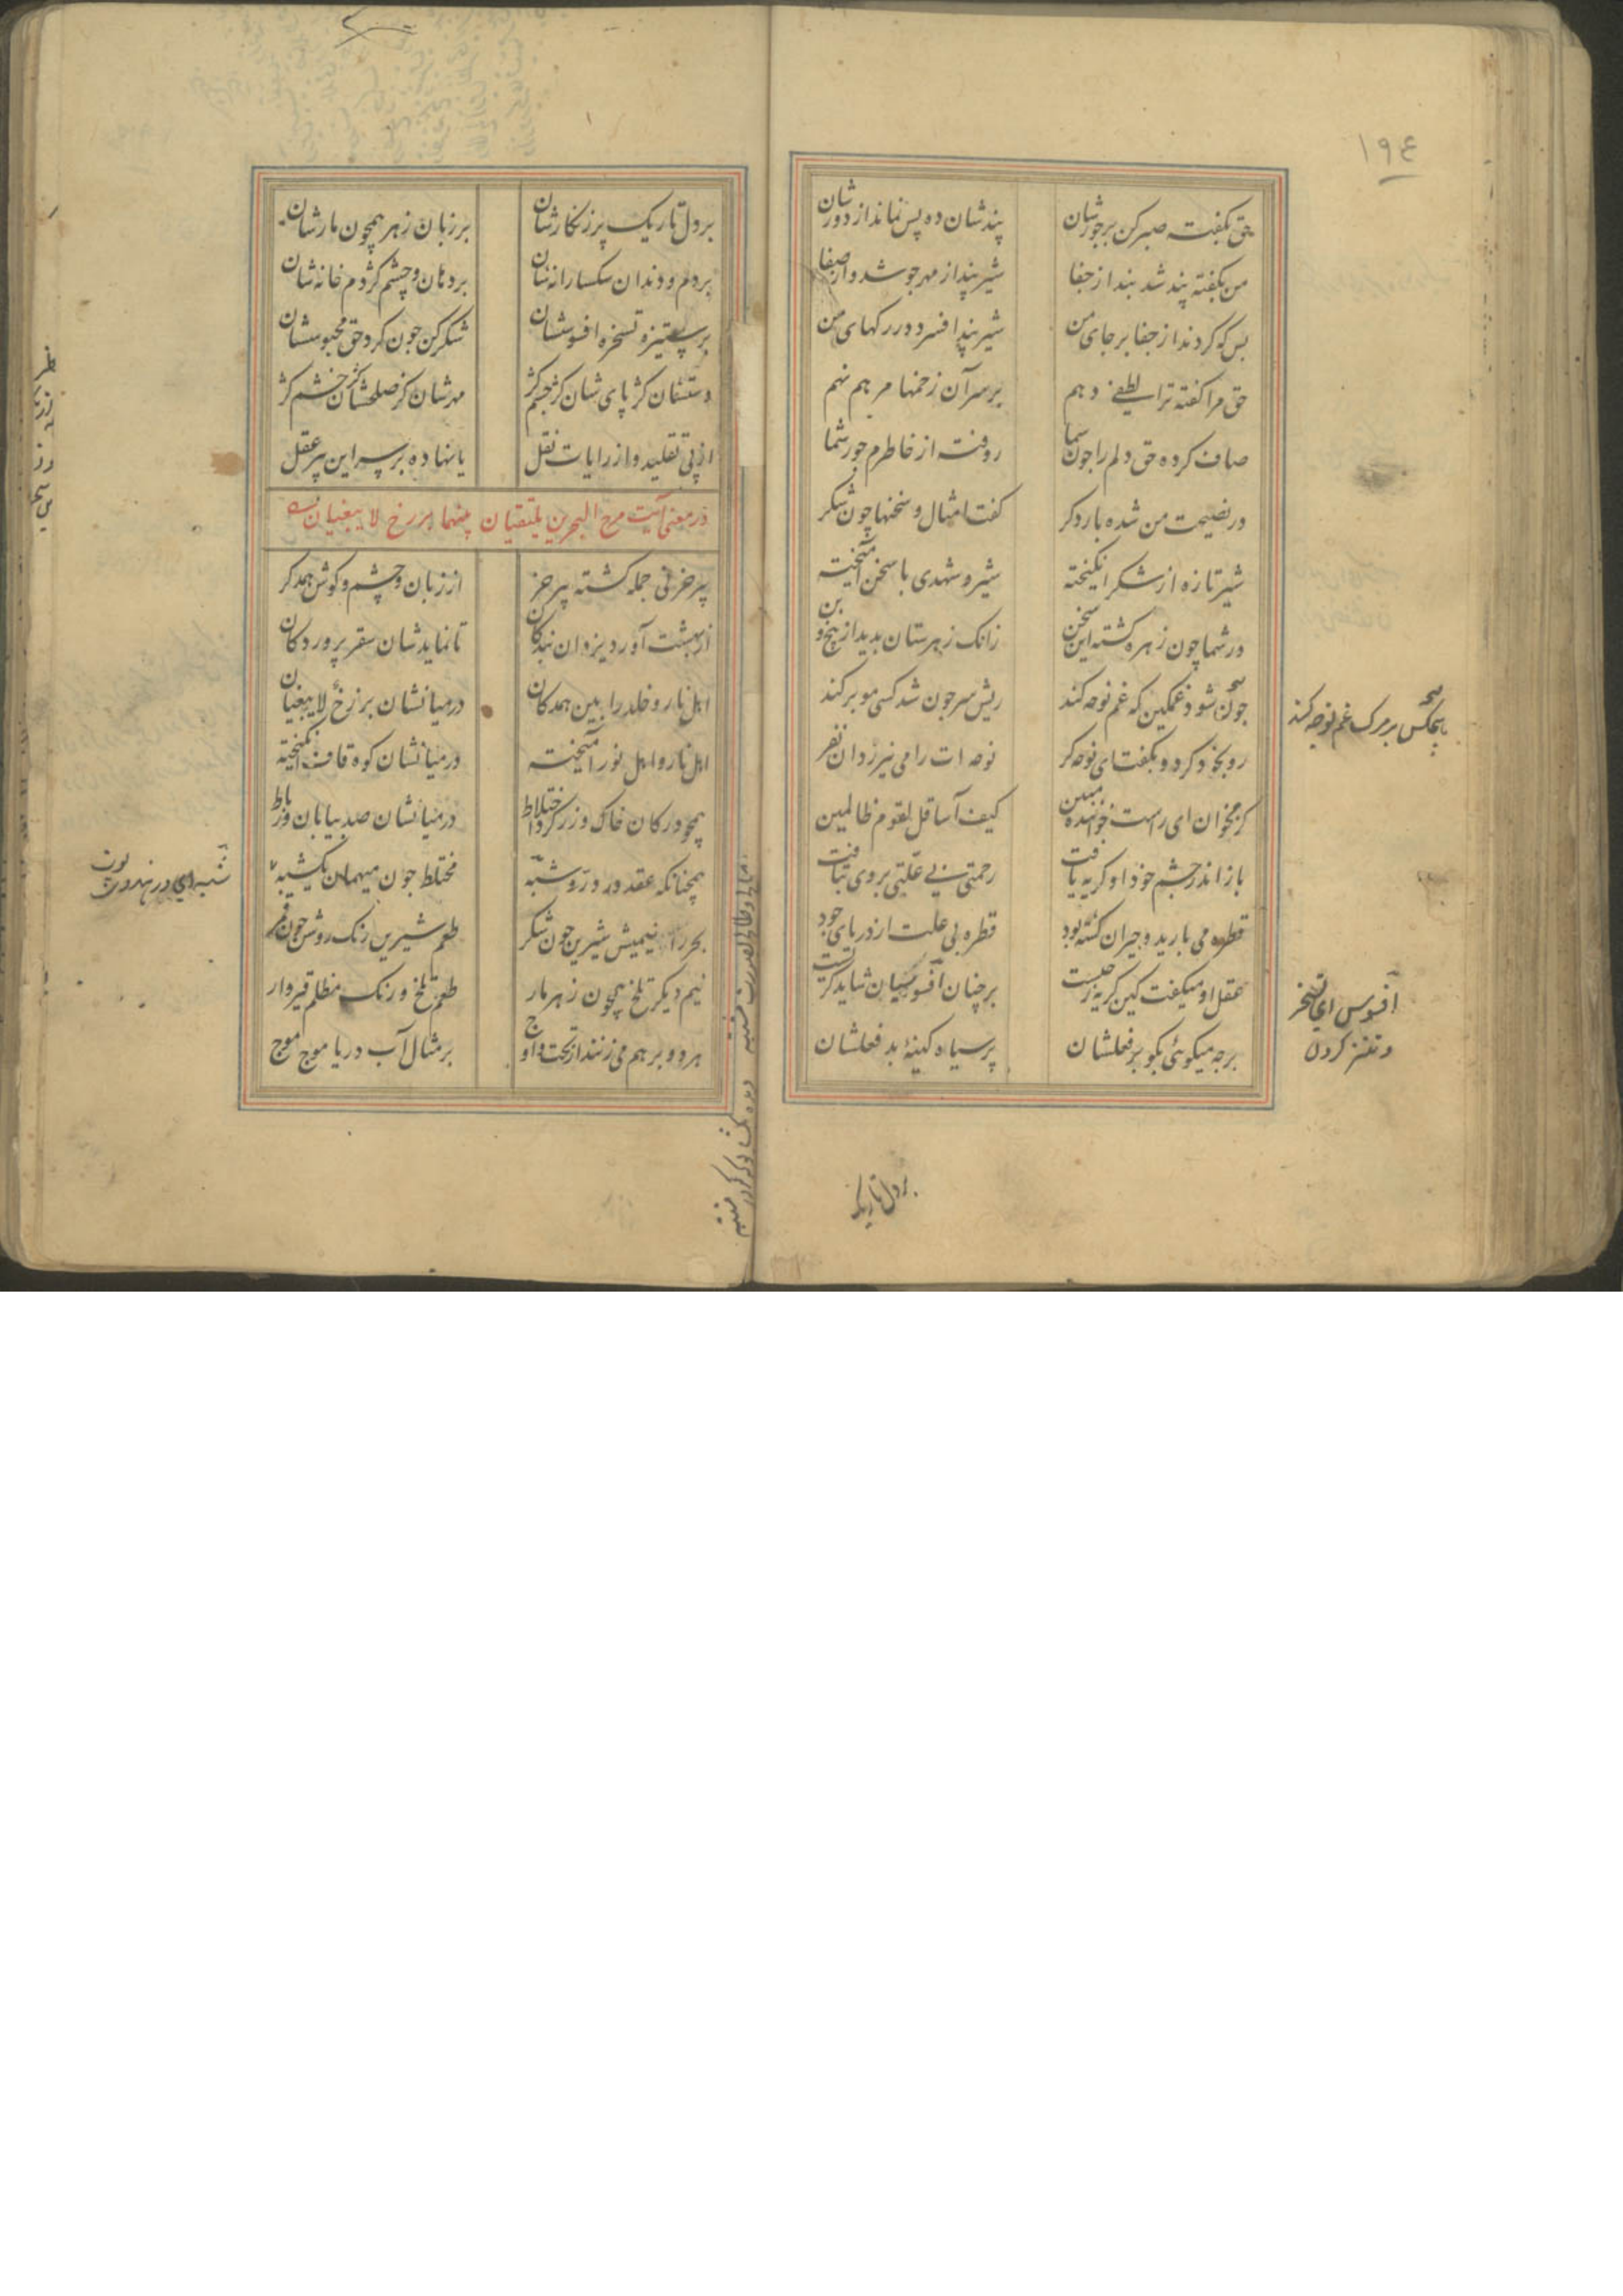 ۱۹٤
حق بگفته صبر کن بر جورشان
پندشان ده بس نماند از دورشان
من بگفته پند شد بند از جفا
شیر پند از مهر جوشد وز صفا
بس که کردند از جفا بر جای من
شیر پند افسرد در رگهای من
حق مرا گفته ترا لطفی دهم
بر سر آن زخمها مرهم نهم
صاف کرده حق دلم را چون سما
روفته از خاطرم جور شما
در نصیحت من شده بار دگر
گفت امثال و سخنها چون شکر
شیر تازه از شکر انگیخته
شیر و شهدی با سخن آمیخته
در شما چون زهر گشته این سخن
زانک زهرستان بدید از بیخ و بن
چون شوم غمگین که غم نوحه کند
ریش سر چون شد کسی مو بر کند
هیچکس بر مرک غم نوحه کند
رو بخود کرد و بگفت ای نوحه گر
نوحه ات را می نیرزد آن نفر
کژ مخوان ای راست خواننده مبین
کیف آسا قل لقوم ظالمین
باز اندر چشم خود او گریه یافت
رحمتی بی علتی بر وی بتافت
قطره می بارید و حیران گشته بود
قطره بی علت از دریای جود
عقل او میگفت کین گریه ز چیست
بر چنان افسوسیان شاید گریست
افسوس ای تسخر
و تنز کردن
بر چه میگوئی بگو بر فعلشان
بر سپاه کینه بد فعلشان
بر دل تاریک
بر دل تاریک پر زنگارشان
بر زبان زهر همچون مارشان
بر دم و دندان سگسارانه شان
بر دهان و چشم کژدم خانه شان
بر ستیزه تسخره افسوسشان
شکر کن چون کرد حق محبوسشان
دستشان کژ پای شان کژ چشم کژ
مهرشان کژ صلحشان کژ خشم کژ
از پی تقلید و از رایات نقل
پا نهاده بر سر این پیر عقل
در معنی آیت مرج البحرین یلتقیان بینهما برزخ لا یبغیان
پیر خر نی جمله گشته پیر خر
از زبان و چشم و گوش همدگر
از بهشت آورد یزدان بندگان
تا نماید شان سقر پروردگان
اهل نار و خلد را بین همدکان
در میانشان برزخ لا یبغیان
اهل نار و اهل نور آمیخته
در میانشان کوه قاف انگیخته
همچو در کان خاک و زر کرد اختلاط
در میانشان صد بیابان و رباط
همچنانکه عقد در در و شبه
مختلط چون میهمان یکشبه
بحر را نیمیش شیرین چون شکر
طعم شیرین رنگ روشن چون قمر
نیم دیگر تلخ همچون زهر مار
طعم تلخ و رنگ مظلم قیروار
هر دو بر هم می زنند از تحت و اوج
بر مثال آب دریا موج موج